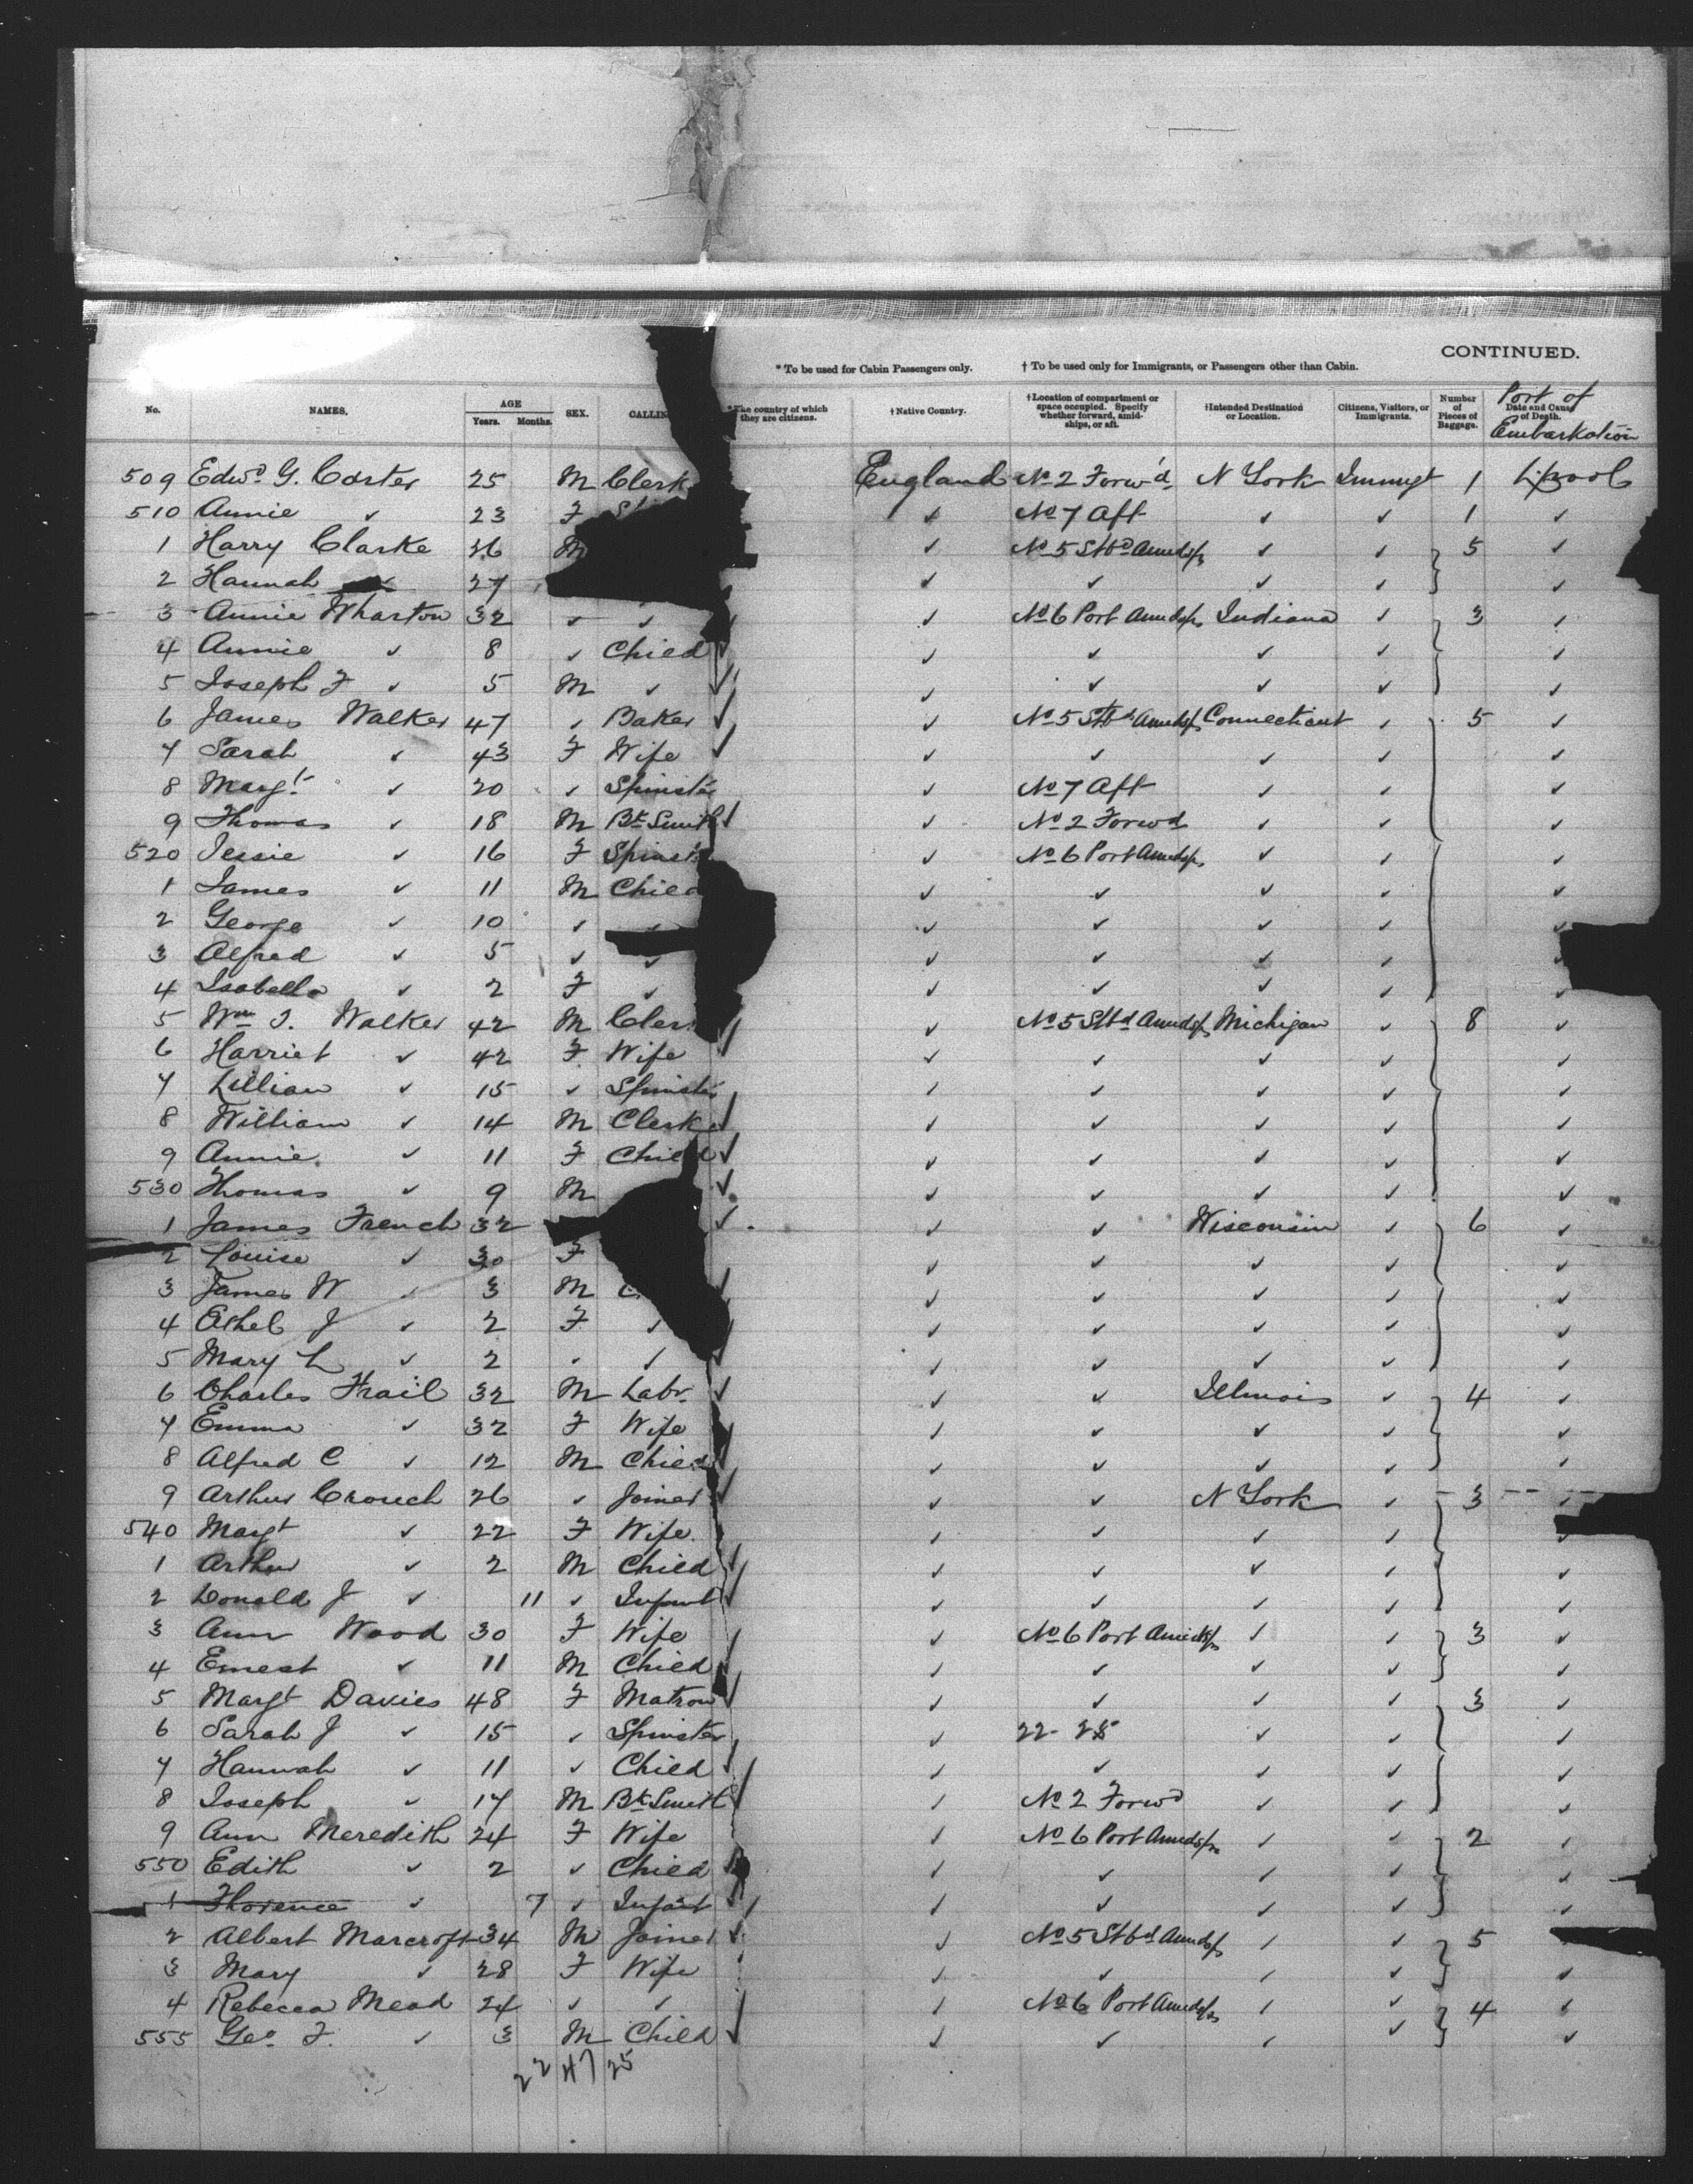 CONTINUED.
* To be used for Cabin Passengers only. † To be used only for Immigrants, or Passengers other than Cabin.
No. NAMES. AGE Years. Months. SEX. CALLIN * The country of which they are citizens. † Native Country. † Location of compartment or space occupied. Specify whether forward, amidships, or aft. † Intended Destination or Location. Citizens, Visitors, or Immigrants. Number of Pieces of Baggage. Date and Cause of Death. Port of Embarkation
509 Edwd. G. Carter 25 M Clerk England No 2 Forw'd N York Immgt 1 L'pool
510 Annie ✓ 23 F ✓ No 7 Aft ✓ ✓ 1 ✓
1 Harry Clarke 36 M ✓ No 5 Stbd Amidsps ✓ ✓ 5 ✓
2 Hannah ✓ 27 ✓ ✓ ✓ ✓ ✓
3 Annie Wharton 32 ✓ ✓ ✓ No 6 Port Amidsps Indiana ✓ 3 ✓
4 Annie ✓ 8 ✓ Child ✓ ✓ ✓ ✓ ✓ ✓
5 Joseph F ✓ 5 M ✓ ✓ ✓ ✓ ✓ ✓ ✓
6 James Walker 47 ✓ Baker ✓ ✓ No 5 Stbd Amidsps Connecticut ✓ 5 ✓
7 Sarah ✓ 43 F Wife ✓ ✓ ✓ ✓ ✓ ✓
8 Margt ✓ 20 ✓ Spinster ✓ No 7 Aft ✓ ✓ ✓
9 Thomas ✓ 18 M Bk Smith ✓ ✓ No 2 Forwd ✓ ✓ ✓
520 Jessie ✓ 16 F Spinst ✓ No 6 Port Amidsps ✓ ✓ ✓
1 James ✓ 11 M Child ✓ ✓ ✓ ✓ ✓
2 George ✓ 10 ✓ ✓ ✓ ✓ ✓ ✓ ✓
3 Alfred ✓ 5 ✓ ✓ ✓ ✓ ✓ ✓ ✓
4 Isabella ✓ 2 F ✓ ✓ ✓ ✓ ✓ ✓
5 Wm J. Walker 42 M Cler ✓ ✓ No 5 Stbd Amidsps Michigan ✓ 8 ✓
6 Harriet ✓ 42 F Wife ✓ ✓ ✓ ✓ ✓ ✓
7 Lillian ✓ 15 ✓ Spinster ✓ ✓ ✓ ✓ ✓
8 William ✓ 14 M Clerk ✓ ✓ ✓ ✓ ✓ ✓
9 Annie ✓ 11 F Child ✓ ✓ ✓ ✓ ✓ ✓
530 Thomas ✓ 9 M ✓ ✓ ✓ ✓ ✓ ✓
1 James French 32 ✓ ✓ ✓ Wisconsin ✓ 6 ✓
2 Louise ✓ 30 F ✓ ✓ ✓ ✓ ✓
3 James W ✓ 3 M C ✓ ✓ ✓ ✓ ✓ ✓
4 Ethel J ✓ 2 F ✓ ✓ ✓ ✓ ✓ ✓ ✓
5 Mary L ✓ 2 ✓ ✓ ✓ ✓ ✓ ✓ ✓ ✓
6 Charles Frail 32 M Labr. ✓ ✓ ✓ Illinois ✓ 4 ✓
7 Emma ✓ 32 F Wife ✓ ✓ ✓ ✓ ✓
8 Alfred C ✓ 12 M Child ✓ ✓ ✓ ✓ ✓ ✓
9 Arthur Crouch 26 ✓ Joiner ✓ ✓ ✓ N York ✓ 3 ✓
540 Margt ✓ 22 F Wife ✓ ✓ ✓ ✓ ✓
1 Arthur ✓ 2 M Child ✓ ✓ ✓ ✓ ✓ ✓
2 Donald J ✓ 11 ✓ Infant ✓ ✓ ✓ ✓ ✓ ✓
3 Ann Wood 30 F Wife ✓ ✓ No 6 Port Amidsps ✓ ✓ 3 ✓
4 Ernest ✓ 11 M Child ✓ ✓ ✓ ✓ ✓ ✓
5 Margt Davies 48 F Matron ✓ ✓ ✓ ✓ ✓ 3 ✓
6 Sarah J ✓ 15 ✓ Spinster ✓ ✓ ✓ ✓ ✓
7 Hannah ✓ 11 ✓ Child ✓ ✓ ✓ ✓ ✓ ✓
8 Joseph ✓ 17 M Bk Smith ✓ ✓ No 2 Forwd ✓ ✓ ✓
9 Ann Meredith 24 F Wife ✓ No 6 Port Amidsps ✓ ✓ 2 ✓
550 Edith ✓ 2 ✓ Child ✓ ✓ ✓ ✓ ✓ ✓
1 Florence ✓ 7 ✓ Infant ✓ ✓ ✓ ✓ ✓ ✓
2 Albert Marcroft 34 M Joiner ✓ ✓ No 5 Stbd Amidsps ✓ ✓ 5
3 Mary ✓ 28 F Wife ✓ ✓ ✓ ✓ ✓
4 Rebecca Mead 24 ✓ ✓ ✓ ✓ No 6 Port Amidsps ✓ ✓ 4 ✓
555 Geo. F. ✓ 3 M Child ✓ ✓ ✓ ✓ ✓ ✓
22 47 25